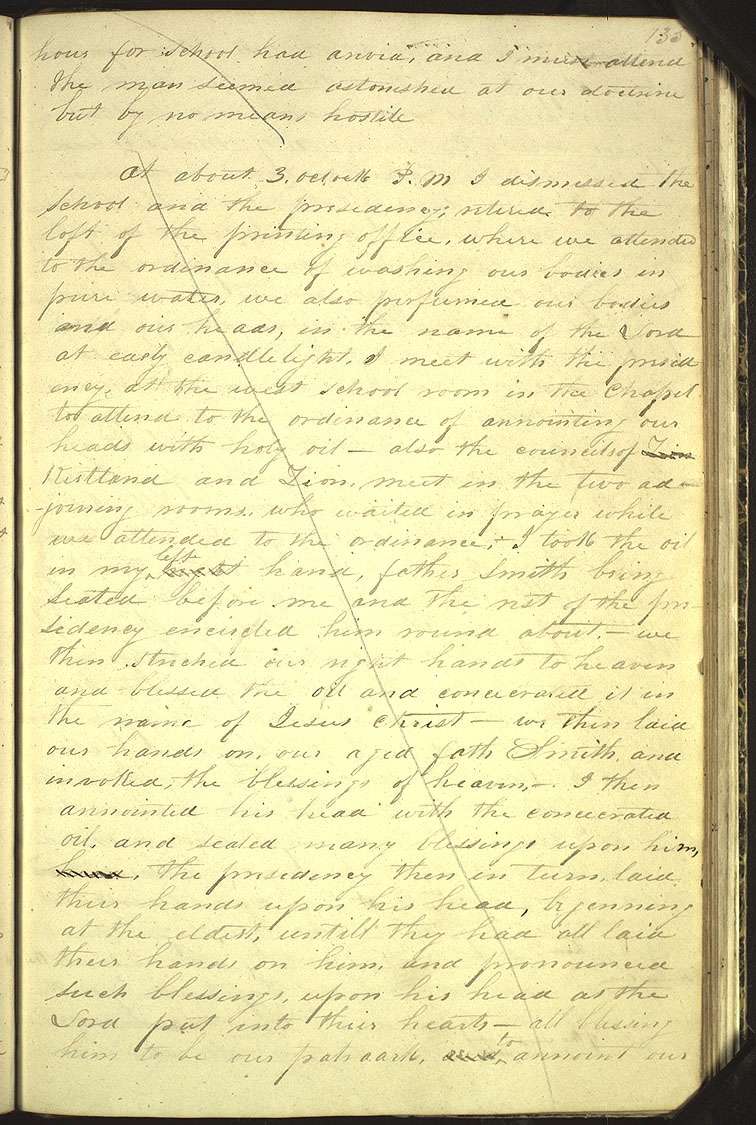 135
hour for school had arrived, and I must attend
the man seemed astonished at our doctrine
but by no means hostile
At about 3. oclock P. M I dismissed the
school and the presidency; retired to the
loft of the printing office, where we attended
to the ordinance of washing our bodies in
pure water, we also perfumed our bodies
and our heads, in the name of the Lord
at early candlelight, I meet with the presid
ency, at the west school room in the Chapel
to attend to the ordinance of annointing our
heads with holy oil — also the councils of Zion
Kirtland and Zion, meet in the two ad-
-joining rooms, who waited in prayer while
we attended to the ordinance, - I took the oil
in my left right hand, father Smith being
seated before me and the rest of the pre-
sidency encircled him round about. — we
then streched our right hands to heaven
and blessed the oil and concecrated it in
the name of Jesus Christ — we then laid
our hands on, our aged fath Smith, and
invoked, the blessings of heaven, — I then
annointed his head with the concecrated
oil, and sealed many blessings upon him,
the presidency then in turn, laid
their hands upon his head, begenning
at the eldest, untill they had all laid
their hands on him, and pronounced
such blessings, upon his head as the
Lord put into their hearts — all blessing
him to be our patraark, and to annoint our